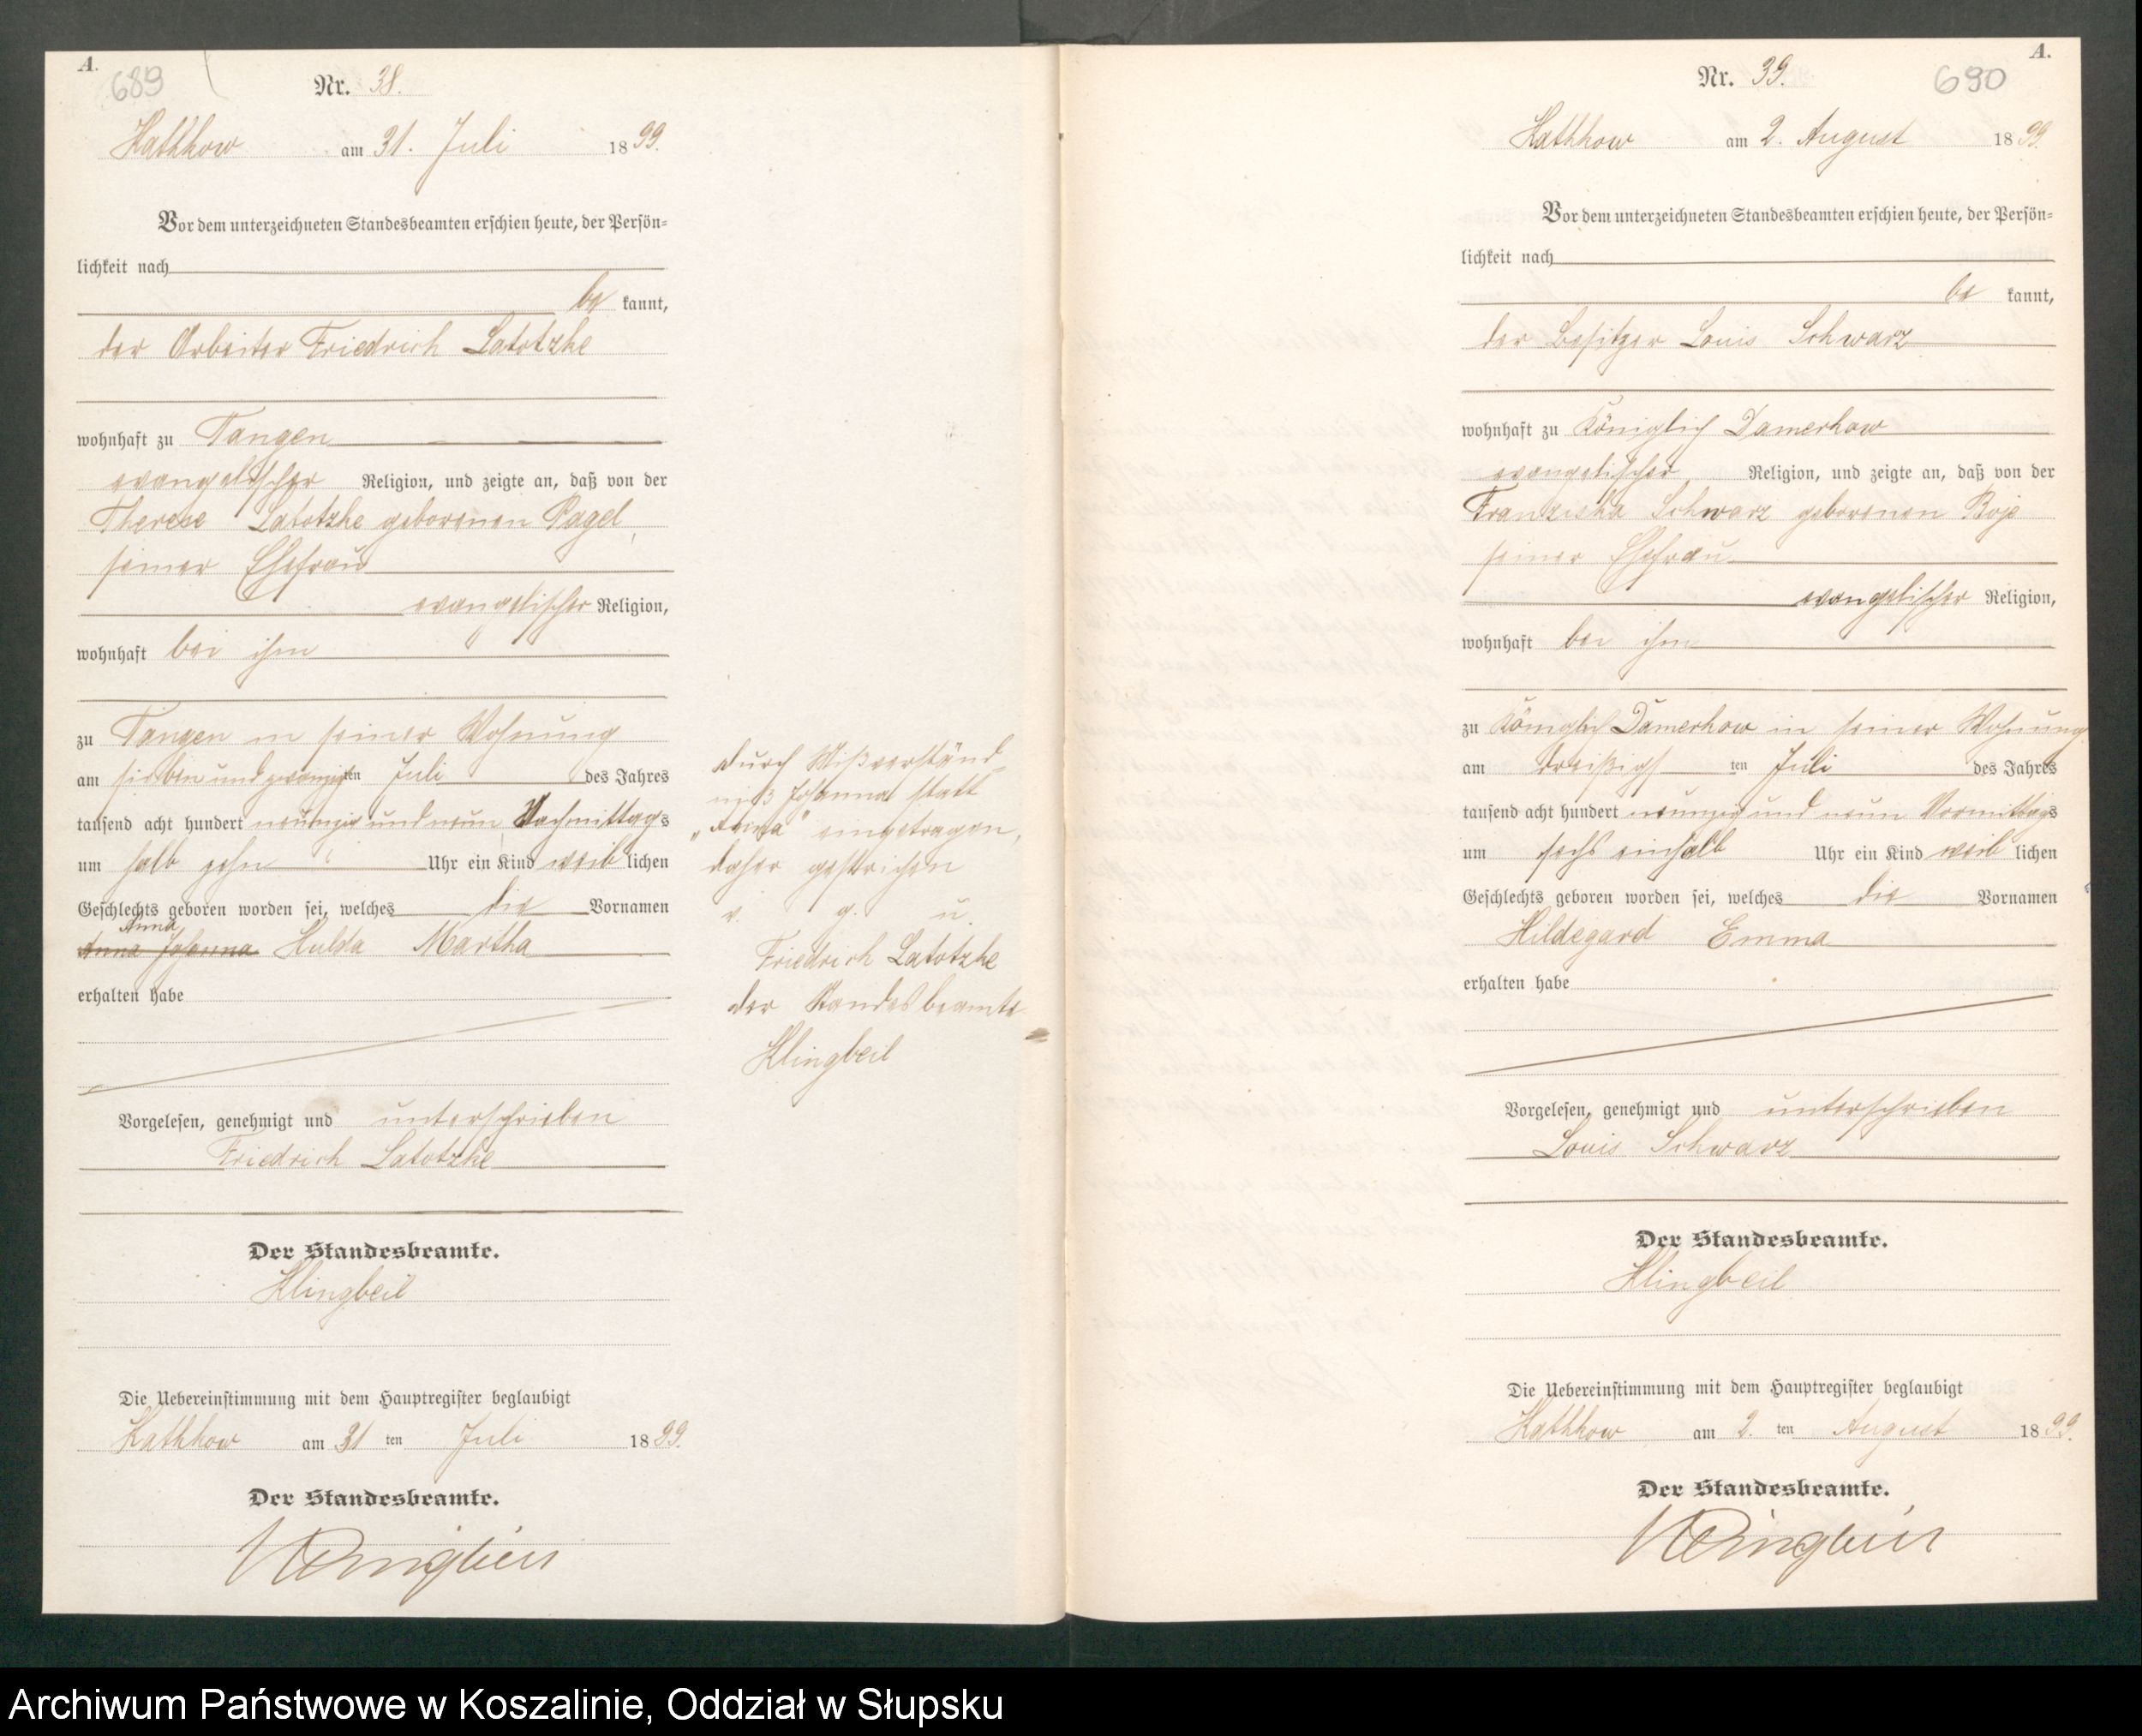 A.
689
Nr. 38.
Kathkow am 31. Juli 1899.
Vor dem unterzeichneten Standesbeamten erschien heute, der Persön-
lichkeit nach
be kannt,
der Arbeiter Friedrich Latotzke
wohnhaft zu Tangen
evangelischer Religion, und zeigte an, daß von der
Therese Latotzke geborenen Pagel,
seiner Ehefrau
evangelischer Religion,
wohnhaft bei ihm
zu Tangen in seiner Wohnung
am sieben und zwanzigsten Juli des Jahres
tausend acht hundert neunzig und neun Nachmittags
um halb zehn Uhr ein Kind weiblichen
Geschlechts geboren worden sei, welches die Vornamen
Anna
Anna Johanna Hulda Martha
erhalten habe
Vorgelesen, genehmigt und unterschrieben
Friedrich Latotzke
Der Standesbeamte.
Klingbeil
Die Uebereinstimmung mit dem Hauptregister beglaubigt
Kathkow am 31 ten Juli 1899.
Der Standesbeamte.
Klingbeil
durch Mißverständ-
niß Johanna statt
„Anna" eingetragen,
daher gestrichen
v. g. u.
Friedrich Latotzke
der Standesbeamte
Klingbeil
A.
690
Nr. 39.
Kathkow am 2. August 1899.
Vor dem unterzeichneten Standesbeamten erschien heute, der Persön-
lichkeit nach
be kannt,
der Besitzer Louis Schwarz
wohnhaft zu Königlich Damerkow
evangelischer Religion, und zeigte an, daß von der
Franziska Schwarz geborenen Boje
seiner Ehefrau
evangelischer Religion,
wohnhaft bei ihm
zu Königlich Damerkow in seiner Wohnung
am dreißigsten Juli des Jahres
tausend acht hundert neunzig und neun Vormittags
um sechs einhalb Uhr ein Kind weiblichen
Geschlechts geboren worden sei, welches die Vornamen
Hildegard Emma
erhalten habe
Vorgelesen, genehmigt und unterschrieben
Louis Schwarz
Der Standesbeamte.
Klingbeil
Die Uebereinstimmung mit dem Hauptregister beglaubigt
Kathkow am 2. ten August 1899.
Der Standesbeamte.
Klingbeil
Archiwum Państwowe w Koszalinie, Oddział w Słupsku